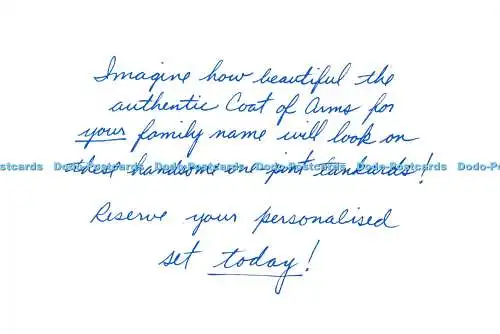 Imagine how beautiful the
authentic Coat of Arms for
your family name will look on
these handsome one pint tankards!
Dodo-Postcards Dodo-Postcards Dodo-Postcards Dodo-Postcards Dodo-Postcards
Reserve your personalised
set today!